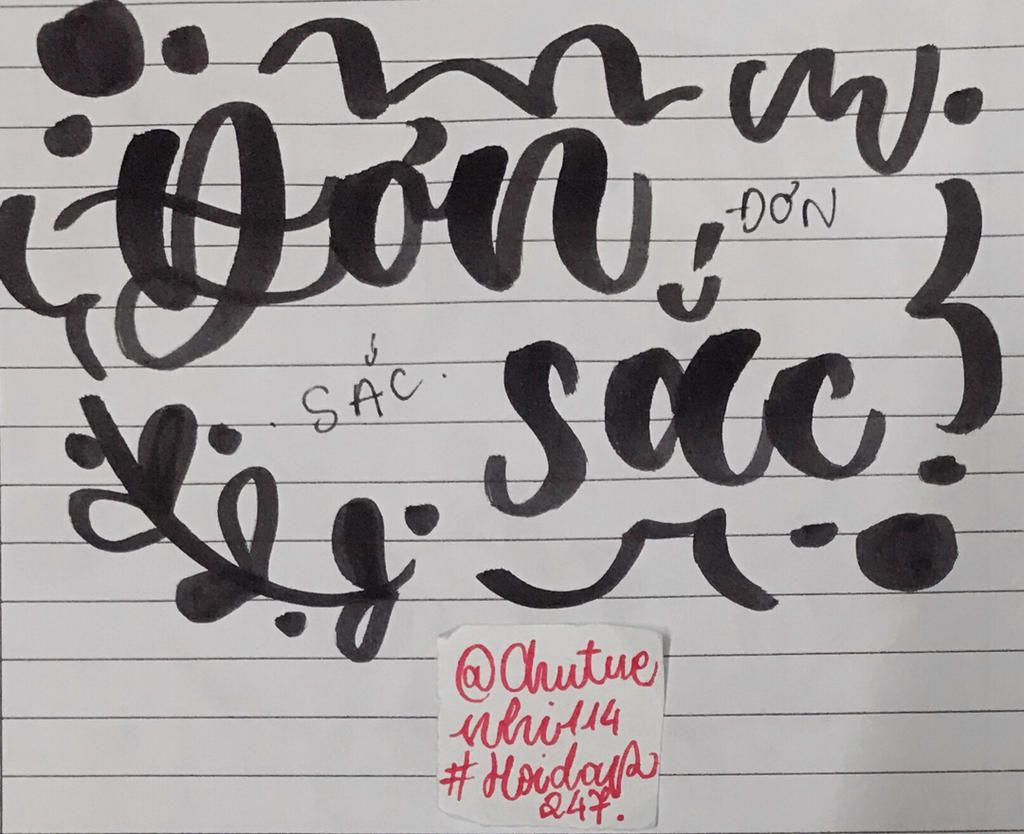 Đơn
ĐƠN
sắc
SẮC.
@Chutue
nhi114
#Hoidap
247.